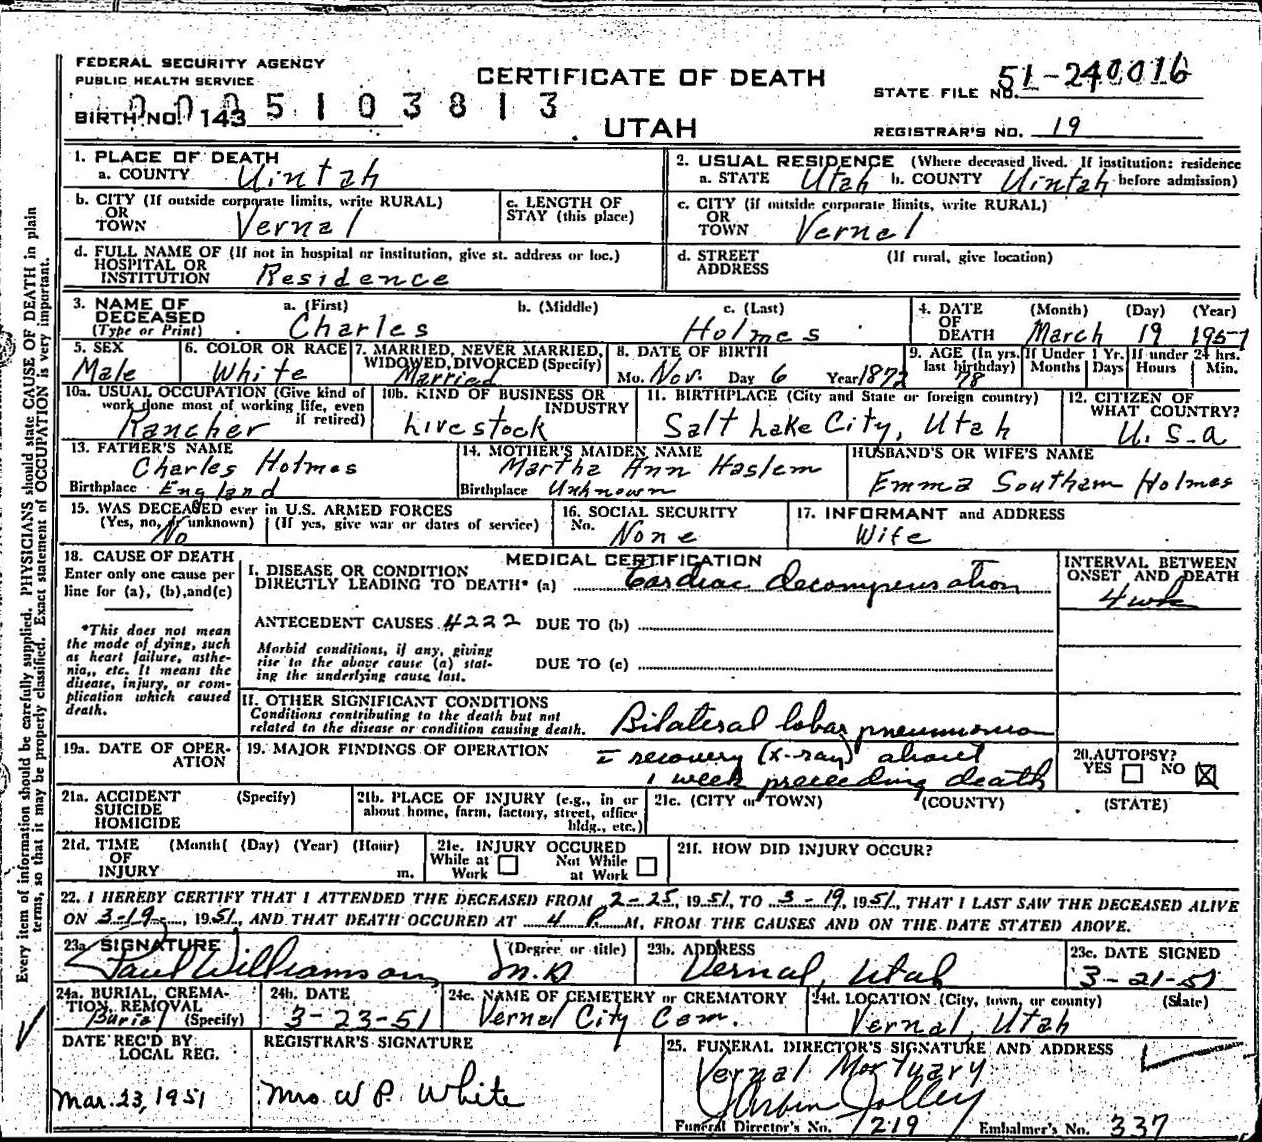 FEDERAL SECURITY AGENCY
PUBLIC HEALTH SERVICE
CERTIFICATE OF DEATH
STATE FILE NO. 51-240016
BIRTH NO. 143
0005103813
UTAH
REGISTRAR'S NO. 19
1. PLACE OF DEATH
a. COUNTY Uintah
2. USUAL RESIDENCE (Where deceased lived. If institution: residence
a. STATE Utah b. COUNTY Uintah before admission)
b. CITY (If outside corporate limits, write RURAL)
OR
TOWN Vernal
c. LENGTH OF
STAY (this place)
c. CITY (if outside corporate limits, write RURAL)
OR
TOWN Vernal
d. FULL NAME OF (If not in hospital or institution, give st. address or loc.)
HOSPITAL OR
INSTITUTION Residence
d. STREET (If rural, give location)
ADDRESS
3. NAME OF a. (First) b. (Middle) c. (Last)
DECEASED
(Type or Print) Charles Holmes
4. DATE (Month) (Day) (Year)
OF
DEATH March 19 1951
5. SEX
Male
6. COLOR OR RACE
White
7. MARRIED, NEVER MARRIED,
WIDOWED, DIVORCED (Specify)
Married
8. DATE OF BIRTH
Mo. Nov. Day 6 Year 1872
9. AGE (In yrs.
last birthday)
78
If Under 1 Yr.
Months Days
If under 24 hrs.
Hours Min.
10a. USUAL OCCUPATION (Give kind of
work done most of working life, even
if retired)
Rancher
10b. KIND OF BUSINESS OR
INDUSTRY
Livestock
11. BIRTHPLACE (City and State or foreign country)
Salt Lake City, Utah
12. CITIZEN OF
WHAT COUNTRY?
U.S.a
13. FATHER'S NAME
Charles Holmes
Birthplace England
14. MOTHER'S MAIDEN NAME
Martha Ann Haslem
Birthplace Unknown
HUSBAND'S OR WIFE'S NAME
Emma Southam Holmes
15. WAS DECEASED ever in U.S. ARMED FORCES
(Yes, no, or unknown) (If yes, give war or dates of service)
No
16. SOCIAL SECURITY
No. None
17. INFORMANT and ADDRESS
Wife
18. CAUSE OF DEATH
Enter only one cause per
line for (a), (b), and (c)
*This does not mean
the mode of dying, such
as heart failure, asthe-
nia,, etc. It means the
disease, injury, or com-
plication which caused
death.
MEDICAL CERTIFICATION
I. DISEASE OR CONDITION
DIRECTLY LEADING TO DEATH* (a) Cardiac decompensation
INTERVAL BETWEEN
ONSET AND DEATH
4 wk
ANTECEDENT CAUSES 4222 DUE TO (b)
Morbid conditions, if any, giving
rise to the above cause (a) stat-
ing the underlying cause last.
DUE TO (c)
II. OTHER SIGNIFICANT CONDITIONS
Conditions contributing to the death but not
related to the disease or condition causing death.
Bilateral lobar pneumonia
recovery (x-ray) about
1 week preceeding death
19a. DATE OF OPER-
ATION
19. MAJOR FINDINGS OF OPERATION
20. AUTOPSY?
YES NO
21a. ACCIDENT (Specify)
SUICIDE
HOMICIDE
21b. PLACE OF INJURY (e.g., in or
about home, farm, factory, street, office
bldg., etc.)
21c. (CITY or TOWN) (COUNTY) (STATE)
21d. TIME (Month( (Day) (Year) (Hour)
OF
INJURY m.
21e. INJURY OCCURED
While at
Work
Not While
at Work
21f. HOW DID INJURY OCCUR?
22. I HEREBY CERTIFY THAT I ATTENDED THE DECEASED FROM 2-25, 1951, TO 3-19, 1951, THAT I LAST SAW THE DECEASED ALIVE
ON 3-19, 1951, AND THAT DEATH OCCURED AT 4 P. M, FROM THE CAUSES AND ON THE DATE STATED ABOVE.
23a SIGNATURE (Degree or title)
Paul Williamson M.D
23b. ADDRESS
Vernal, Utah
23c. DATE SIGNED
3-21-51
24a. BURIAL, CREMA-
TION, REMOVAL
Burial (Specify)
24b. DATE
3-23-51
24c. NAME OF CEMETERY or CREMATORY
Vernal City Cem.
24d. LOCATION (City, town, or county) (State)
Vernal, Utah
DATE REC'D BY
LOCAL REG.
Mar. 23, 1951
REGISTRAR'S SIGNATURE
Mrs W P. White
25. FUNERAL DIRECTOR'S SIGNATURE AND ADDRESS
Vernal Mortuary
Jolley
Funeral Director's No. 1219 Embalmer's No. 337
Every item of information should be carefully supplied. PHYSICIANS should state CAUSE OF DEATH in plain
terms, so that it may be properly classified. Exact statement of OCCUPATION is very important.